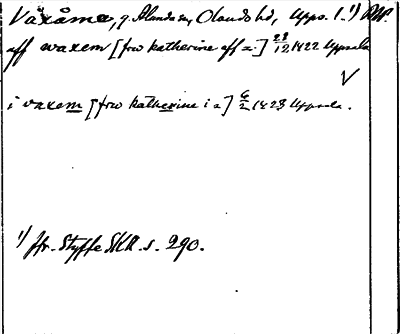 Vaxåma, g. Ålands sn, Olands hd, Upps. l. ¹) RAP.
aff waxem [frw katherine aff =] 28/12 1422 Uppsala
i vaxem [frw katherine i =] 6/2 1423 Uppsala.
¹) jfr. Styffe SKU. s. 290.